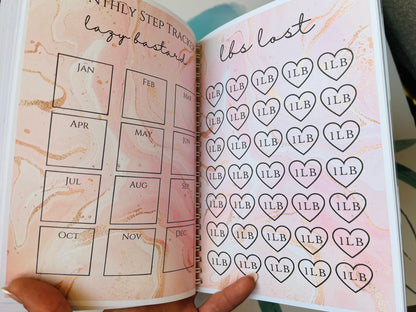 NTHLY STEP TRACKE
lazy bastard
JAN FEB MAR
APR MAY JUN
JUL AUG SEP
OCT NOV DEC
lbs lost
1LB 1LB 1LB 1LB 1LB
1LB 1LB 1LB 1LB 1LB
1LB 1LB 1LB 1LB 1LB
1LB 1LB 1LB 1LB 1LB
1LB 1LB 1LB 1LB 1LB
1LB 1LB 1LB 1LB 1LB
1LB 1LB 1LB 1LB 1LB